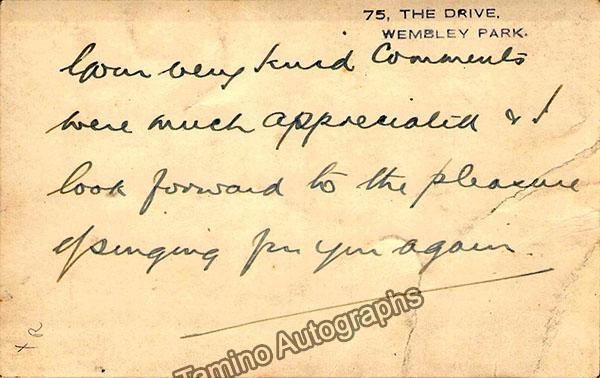 75, THE DRIVE,
WEMBLEY PARK.
Your very kind Comments
were much appreciated & I
look forward to the pleasure
of singing for you again.
Tamino Autographs